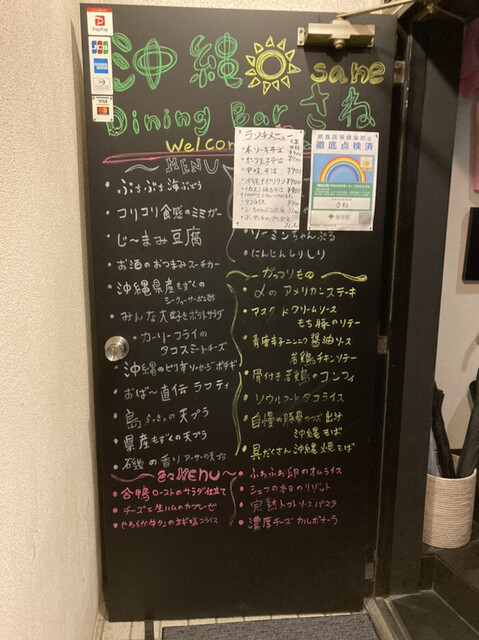 PayPay
JCB
AMERICAN EXPRESS
VISA
沖縄 sane
Dining Bar さね
Welcom
MENU
・ぷちぷち海ぶどう
・コリコリ食感のミミガー
・じ〜まみ豆腐
・お酒のおつまみスーチカー
・沖縄県産もずくの
・みんな大好きポテトサラダ
・カーリーフライの
タコスミートチーズ
・沖縄のピリ辛ソーセージ
・おば〜直伝ラフティ
・島らっきょの天プラ
・県産もずくの天プラ
・石磯の香り アーサーの天プラ
ランチメニュー
・本ソーキそば
・中味そば
・タコライス
飲食店等感染防止
徹底点検済
さね
・ソーミンちゃんぷる
・にんじんしりしり
〜がっつりもの〜
アメリカンステーキ
クリームソース
もち豚のソテー
醤油ソース
若鶏チキンソテー
・骨付き若鶏のコンフィ
・ソウルフードタコライス
・自慢の豚骨カツオ出汁
沖縄そば
・具だくさん沖縄焼そば
MENU〜
・合鴨ローストのサラダ仕立て
・チーズと生ハムのカプレーゼ
・やわらか牛タンのネギ塩スライス
・ふわふわ卵のオムライス
・シェフの本日のリゾット
・完熟トマトソースパスタ
・濃厚チーズカルボナーラ